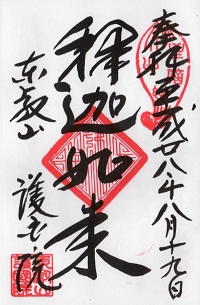 奉拝 平成廿八年八月十九日
釋迦如来
東叡山 護国院